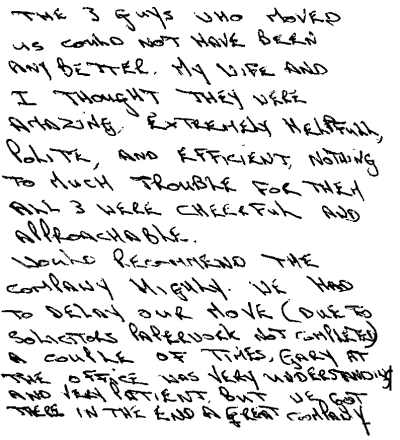 THE 3 GUYS WHO MOVED
US COULD NOT HAVE BEEN
ANY BETTER. MY WIFE AND
I THOUGHT THEY WERE
AMAZING. EXTREMELY HELPFULL,
POLITE, AND EFFICIENT, NOTHING
TO MUCH TROUBLE FOR THEM
ALL 3 WERE CHEERFUL AND
APPROACHABLE.
WOULD RECOMMEND THE
COMPANY HIGHLY. WE HAD
TO DELAY OUR MOVE (DUE TO
SOLICITORS PAPERWORK NOT COMPLETED)
A COUPLE OF TIMES, GARY AT
THE OFFICE WAS VERY UNDERSTANDING
AND VERY PATIENT, BUT WE GOT
THERE IN THE END A GREAT COMPANY